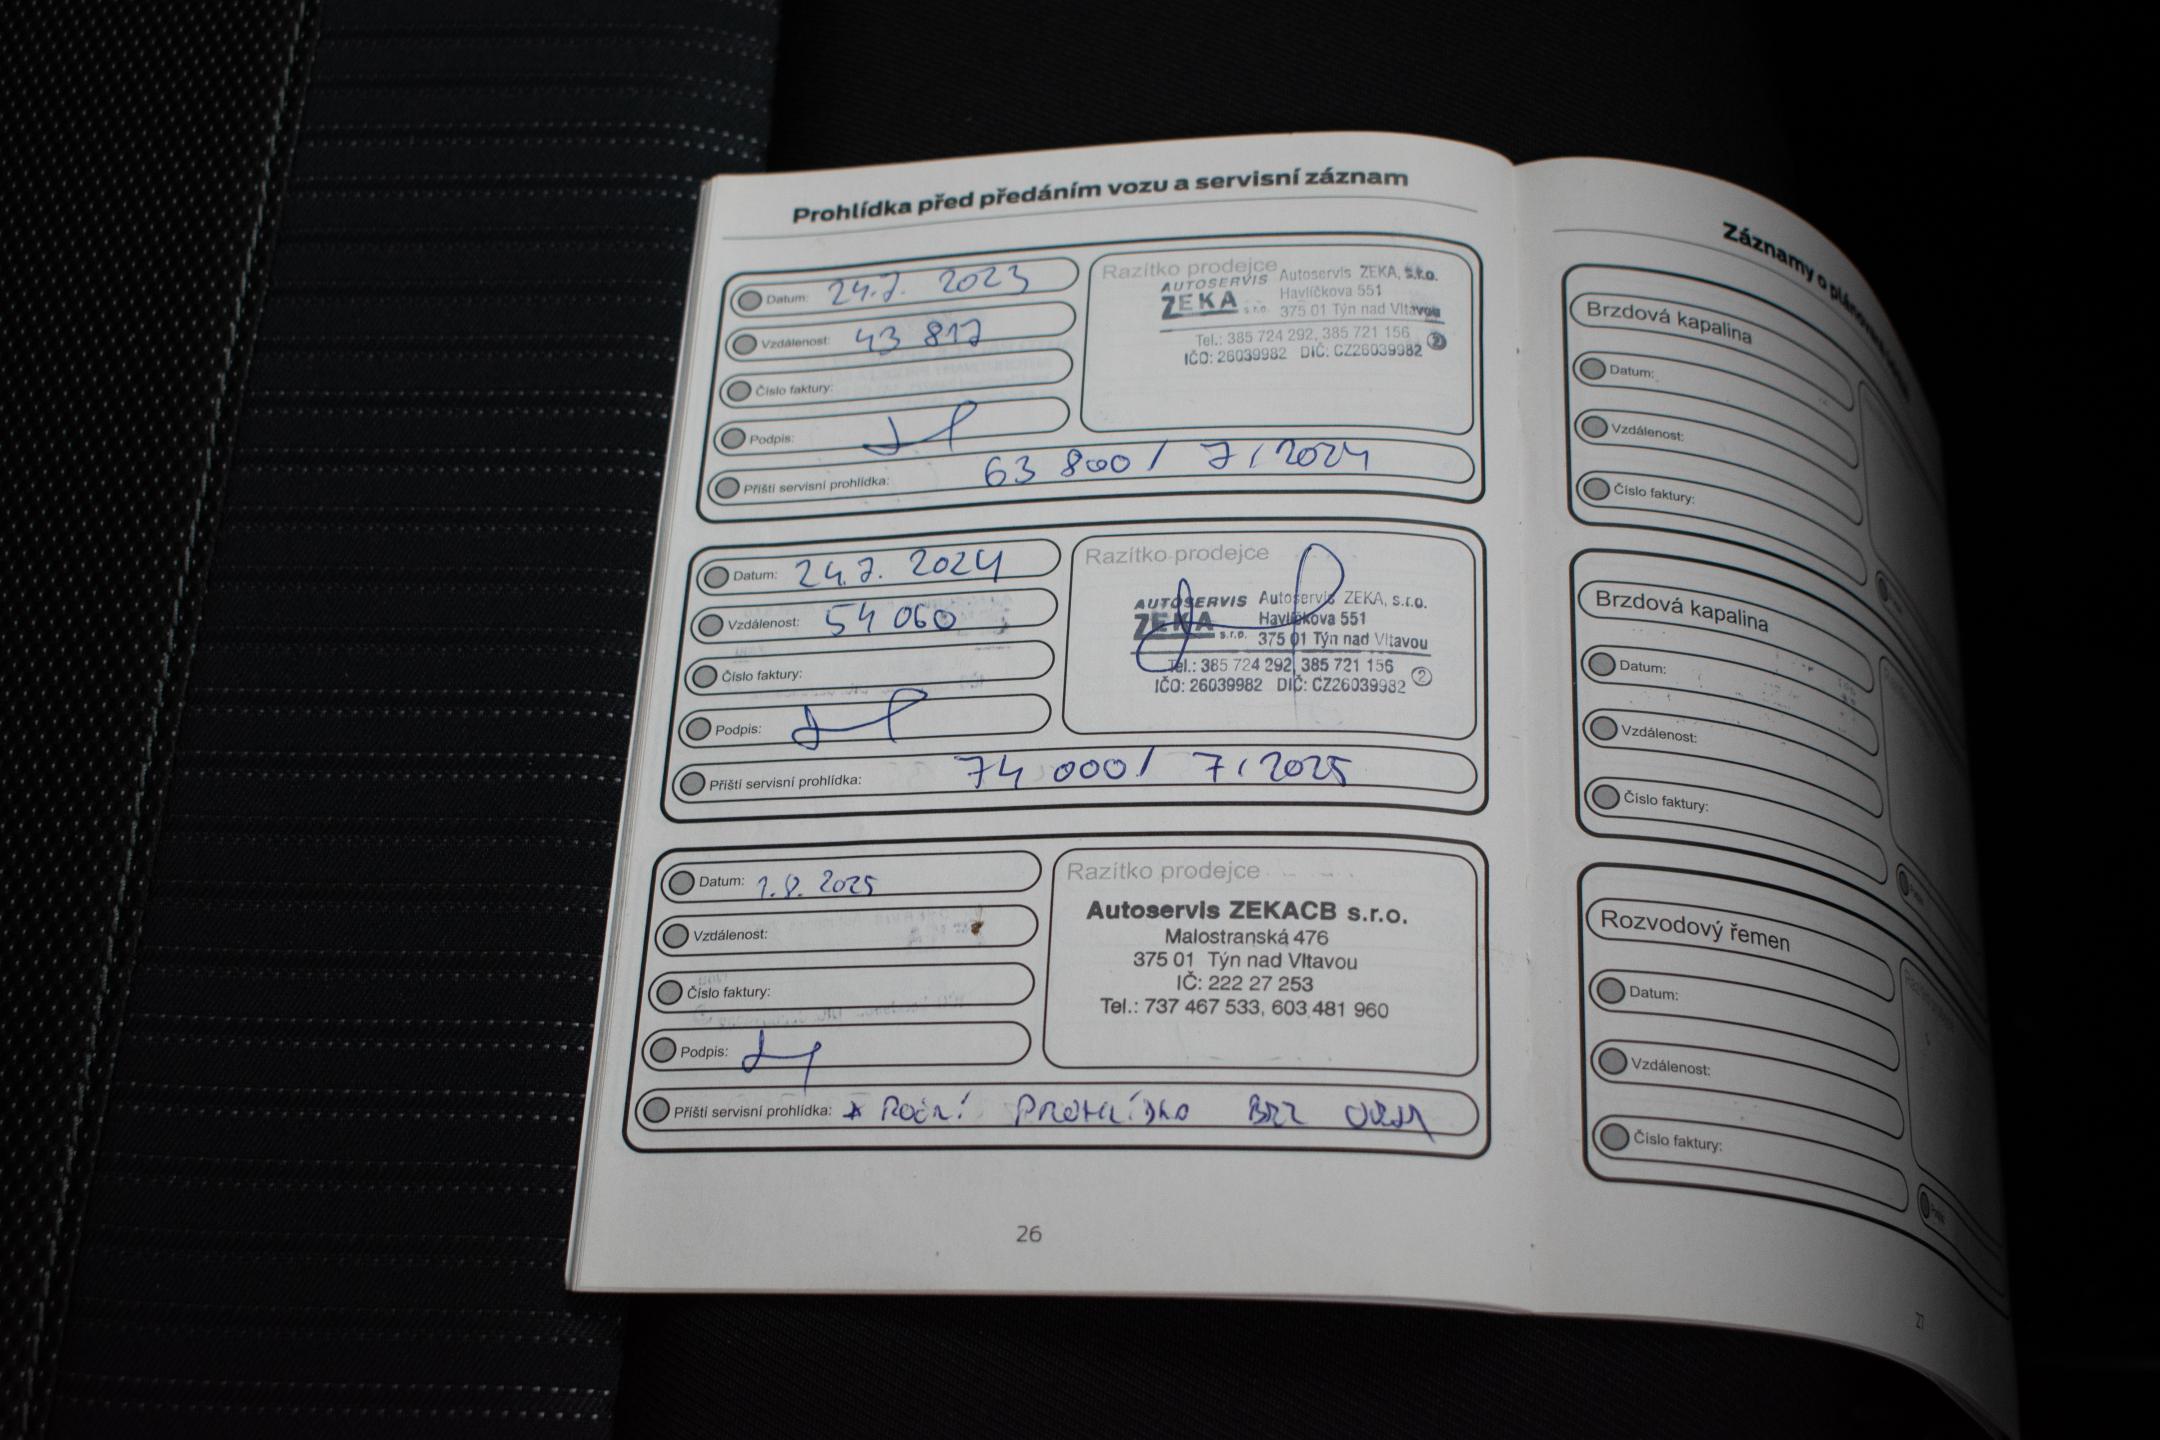 Prohlídka před předáním vozu a servisní záznam
Datum: 24.7. 2023
Vzdálenost: 43 817
Číslo faktury:
Podpis:
Příští servisní prohlídka: 63 800 / 7 / 2024
Razítko prodejce
AUTOSERVIS
ZEKA s.r.o.
Autoservis ZEKA, s.r.o.
Havlíčkova 551
375 01 Týn nad Vltavou
Tel.: 385 724 292, 385 721 156
IČO: 26039982 DIČ: CZ26039982
2
Datum: 24.7. 2024
Vzdálenost: 54 060
Číslo faktury:
Podpis:
Příští servisní prohlídka: 74 000 / 7 / 2025
Razítko prodejce
AUTOSERVIS
ZEKA s.r.o.
Autoservis ZEKA, s.r.o.
Havlíčkova 551
375 01 Týn nad Vltavou
Tel.: 385 724 292, 385 721 156
IČO: 26039982 DIČ: CZ26039982
2
Datum: 1.8. 2025
Vzdálenost:
Číslo faktury:
Podpis:
Příští servisní prohlídka: * Roční PROHLÍDKA
Razítko prodejce
Autoservis ZEKACB s.r.o.
Malostranská 476
375 01 Týn nad Vltavou
IČ: 222 27 253
Tel.: 737 467 533, 603 481 960
26
Záznamy o
Brzdová kapalina
Datum:
Vzdálenost:
Číslo faktury:
Brzdová kapalina
Datum:
Vzdálenost:
Číslo faktury:
Rozvodový řemen
Datum:
Vzdálenost:
Číslo faktury:
27